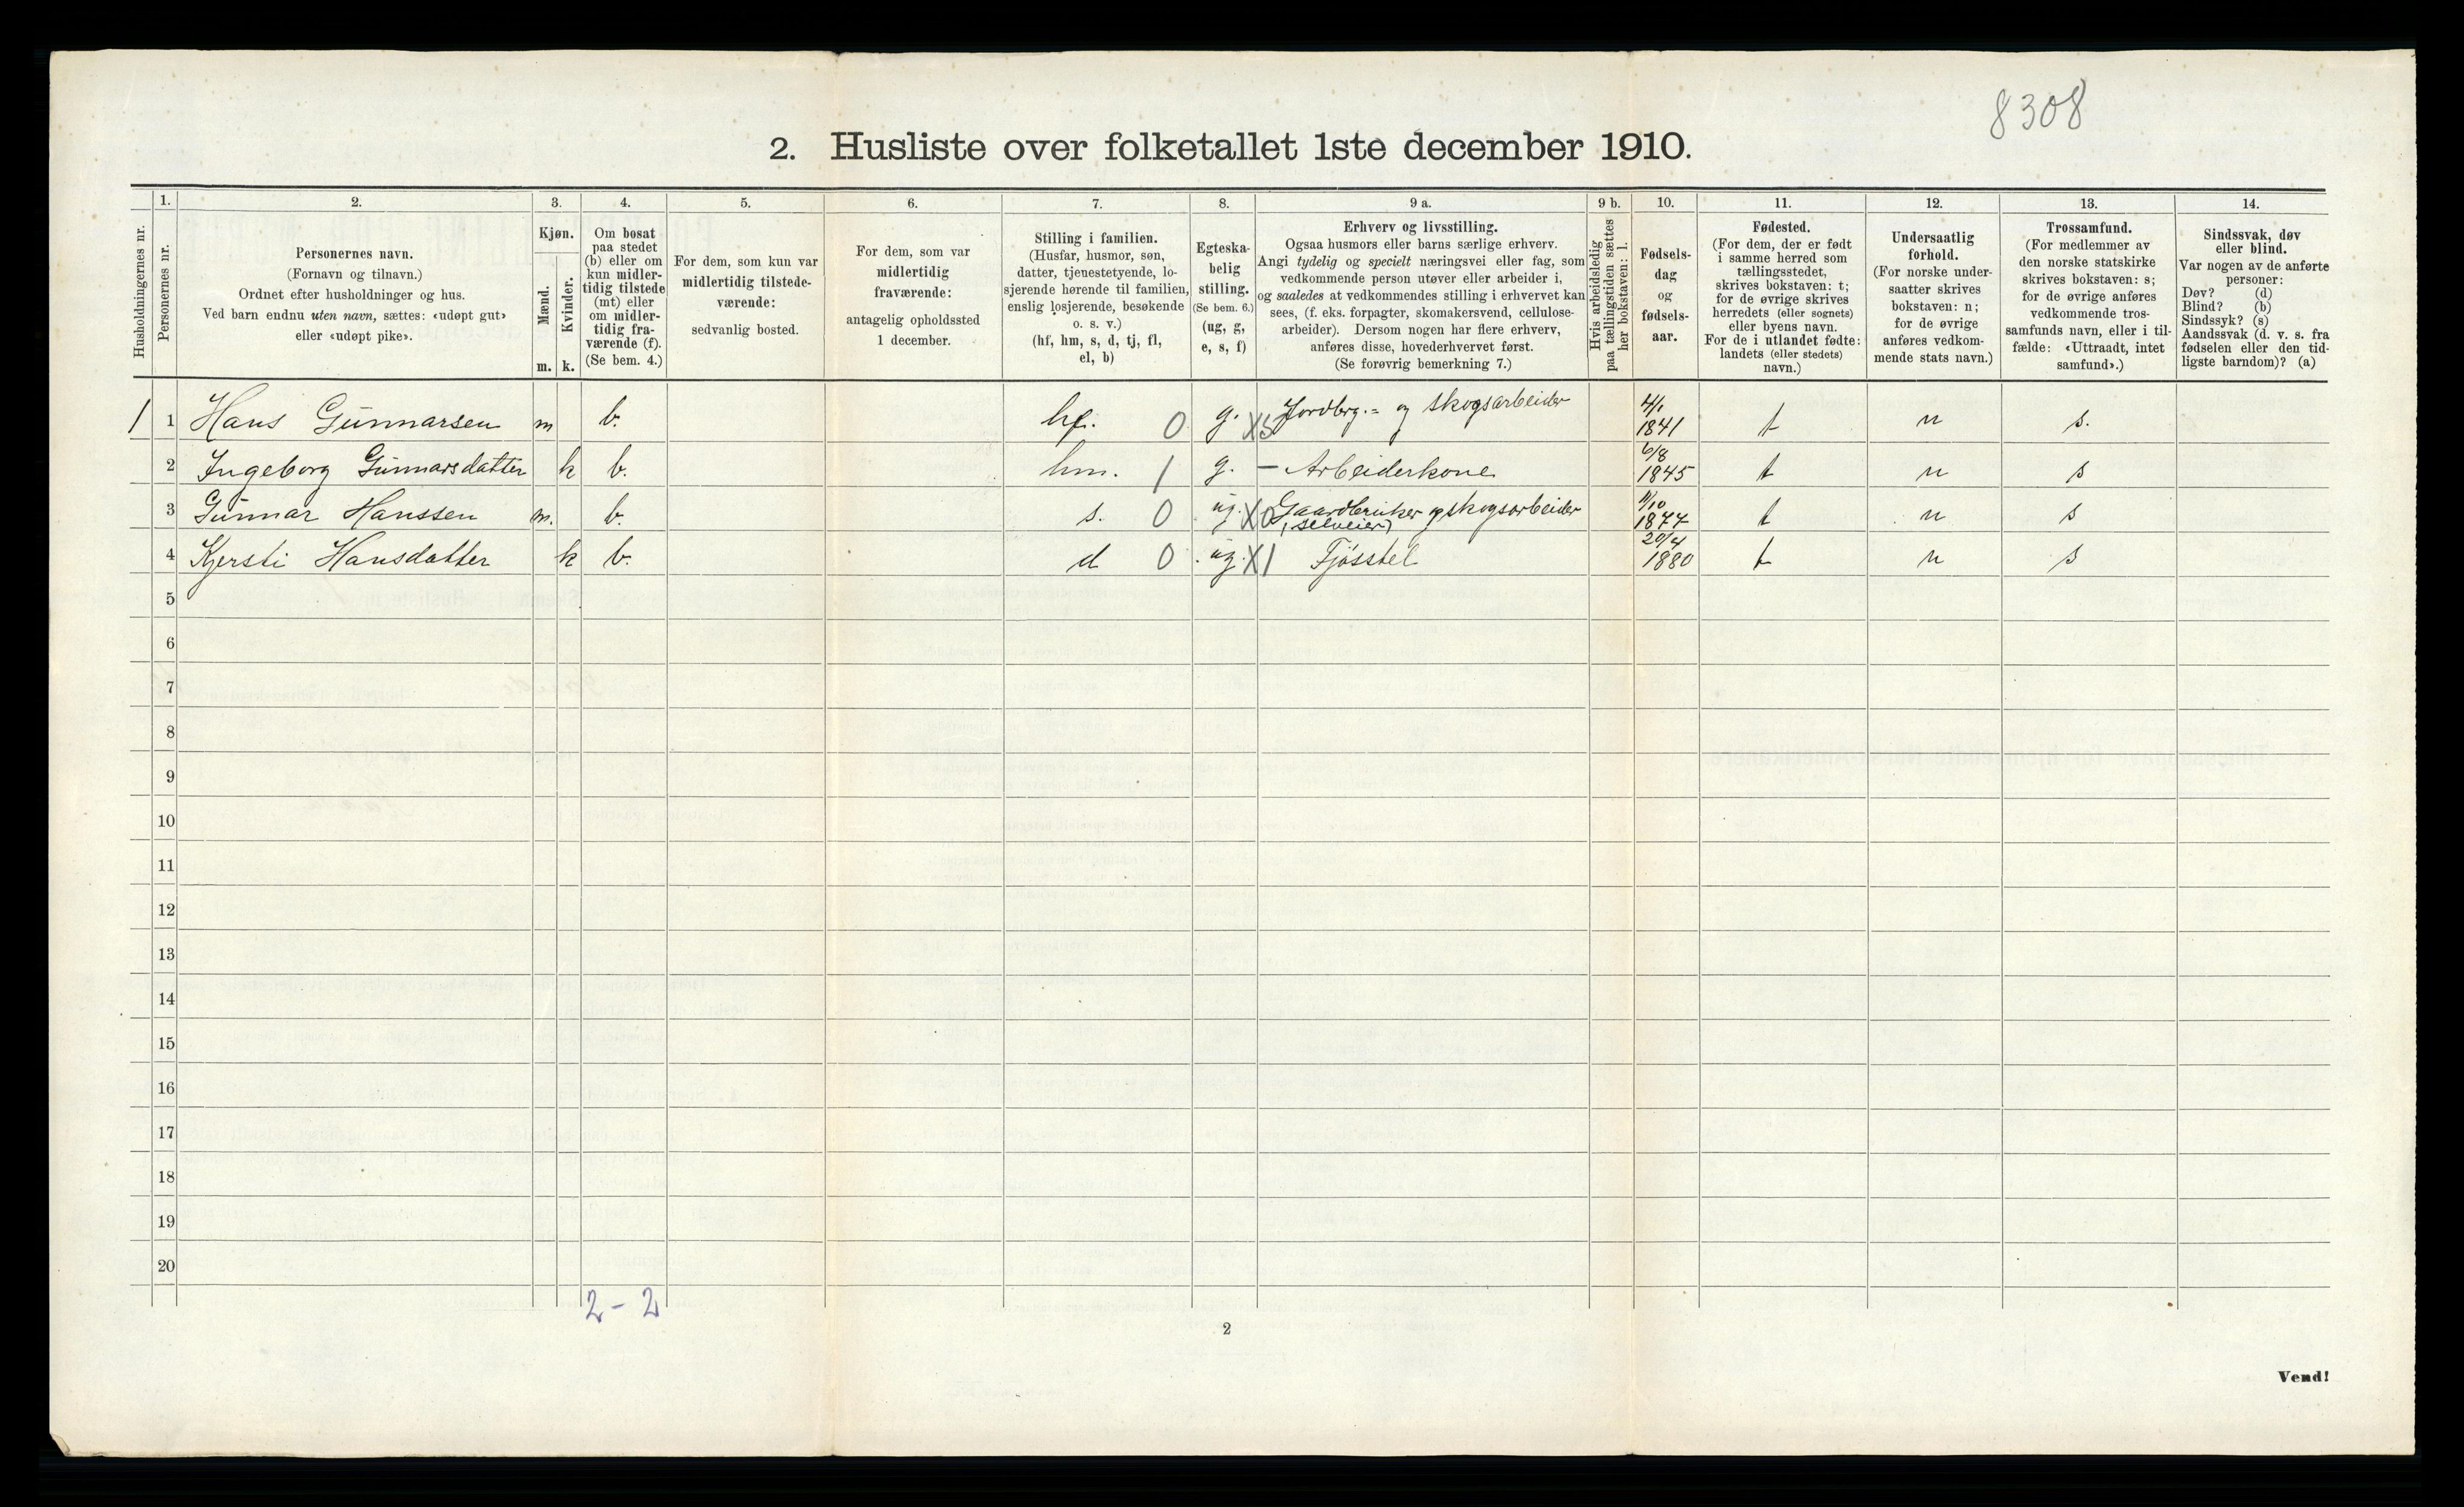 8308
2. Husliste over folketallet 1ste december 1910.
Husholdningernes nr.
1.
Personernes nr.
2.
Personernes navn.
(Fornavn og tilnavn.)
Ordnet efter husholdninger og hus.
Ved barn endnu uten navn, sættes: «udøpt gut»
eller «udøpt pike».
3.
Kjøn.
Mænd.
Kvinder.
m. k.
4.
Om bosat
paa stedet
(b) eller om
kun midler-
tidig tilstede
(mt) eller
om midler-
tidig fra-
værende (f).
(Se bem. 4.)
5.
For dem, som kun var
midlertidig tilstede-
værende:
sedvanlig bosted.
6.
For dem, som var
midlertidig
fraværende:
antagelig opholdssted
1 december.
7.
Stilling i familien.
(Husfar, husmor, søn,
datter, tjenestetyende, lo-
sjerende hørende til familien,
enslig losjerende, besøkende
o. s. v.)
(hf, hm, s, d, tj, fl,
el, b)
8.
Egteska-
belig
stilling.
(Se bem. 6.)
(ug, g,
e, s, f)
9 a.
Erhverv og livsstilling.
Ogsaa husmors eller barns særlige erhverv.
Angi tydelig og specielt næringsvei eller fag, som
vedkommende person utøver eller arbeider i,
og saaledes at vedkommendes stilling i erhvervet kan
sees, (f. eks. forpagter, skomakersvend, cellulose-
arbeider). Dersom nogen har flere erhverv,
anføres disse, hovederhvervet først.
(Se forøvrig bemerkning 7.)
9 b.
Hvis arbeidsledig
paa tællingstiden sættes
her bokstaven: l.
10.
Fødsels-
dag
og
fødsels-
aar.
11.
Fødested.
(For dem, der er født
i samme herred som
tællingsstedet,
skrives bokstaven: t;
for de øvrige skrives
herredets (eller sognets)
eller byens navn.
For de i utlandet fødte:
landets (eller stedets)
navn.)
12.
Undersaatlig
forhold.
(For norske under-
saatter skrives
bokstaven: n;
for de øvrige
anføres vedkom-
mende stats navn.)
13.
Trossamfund.
(For medlemmer av
den norske statskirke
skrives bokstaven: s;
for de øvrige anføres
vedkommende tros-
samfunds navn, eller i til-
fælde: «Uttraadt, intet
samfund».)
14.
Sindssvak, døv
eller blind.
Var nogen av de anførte
personer:
Døv? (d)
Blind? (b)
Sindssyk? (s)
Aandssvak (d. v. s. fra
fødselen eller den tid-
ligste barndom)? (a)
1 1 Hans Gunnarsen m b. hf. 0 g. X5 Jordbrg.= og skogsarbeider 4/1 1841 t n s.
2 Ingeborg Gunnarsdatter k b. hm. 1 g. — Arbeiderkone 6/8 1845 t n s
3 Gunnar Hanssen m. b. s. 0 ug. X0 Gaardbruker og skogsarbeider (selveier) 11/10 1877 t n s
4 Kjersti Hansdatter k b. d 0 ug. X1 Fjøsstel 20/4 1880 t n s
5
6
7
8
9
10
11
12
13
14
15
16
17
18
19
20
2 - 2
2
Vend!